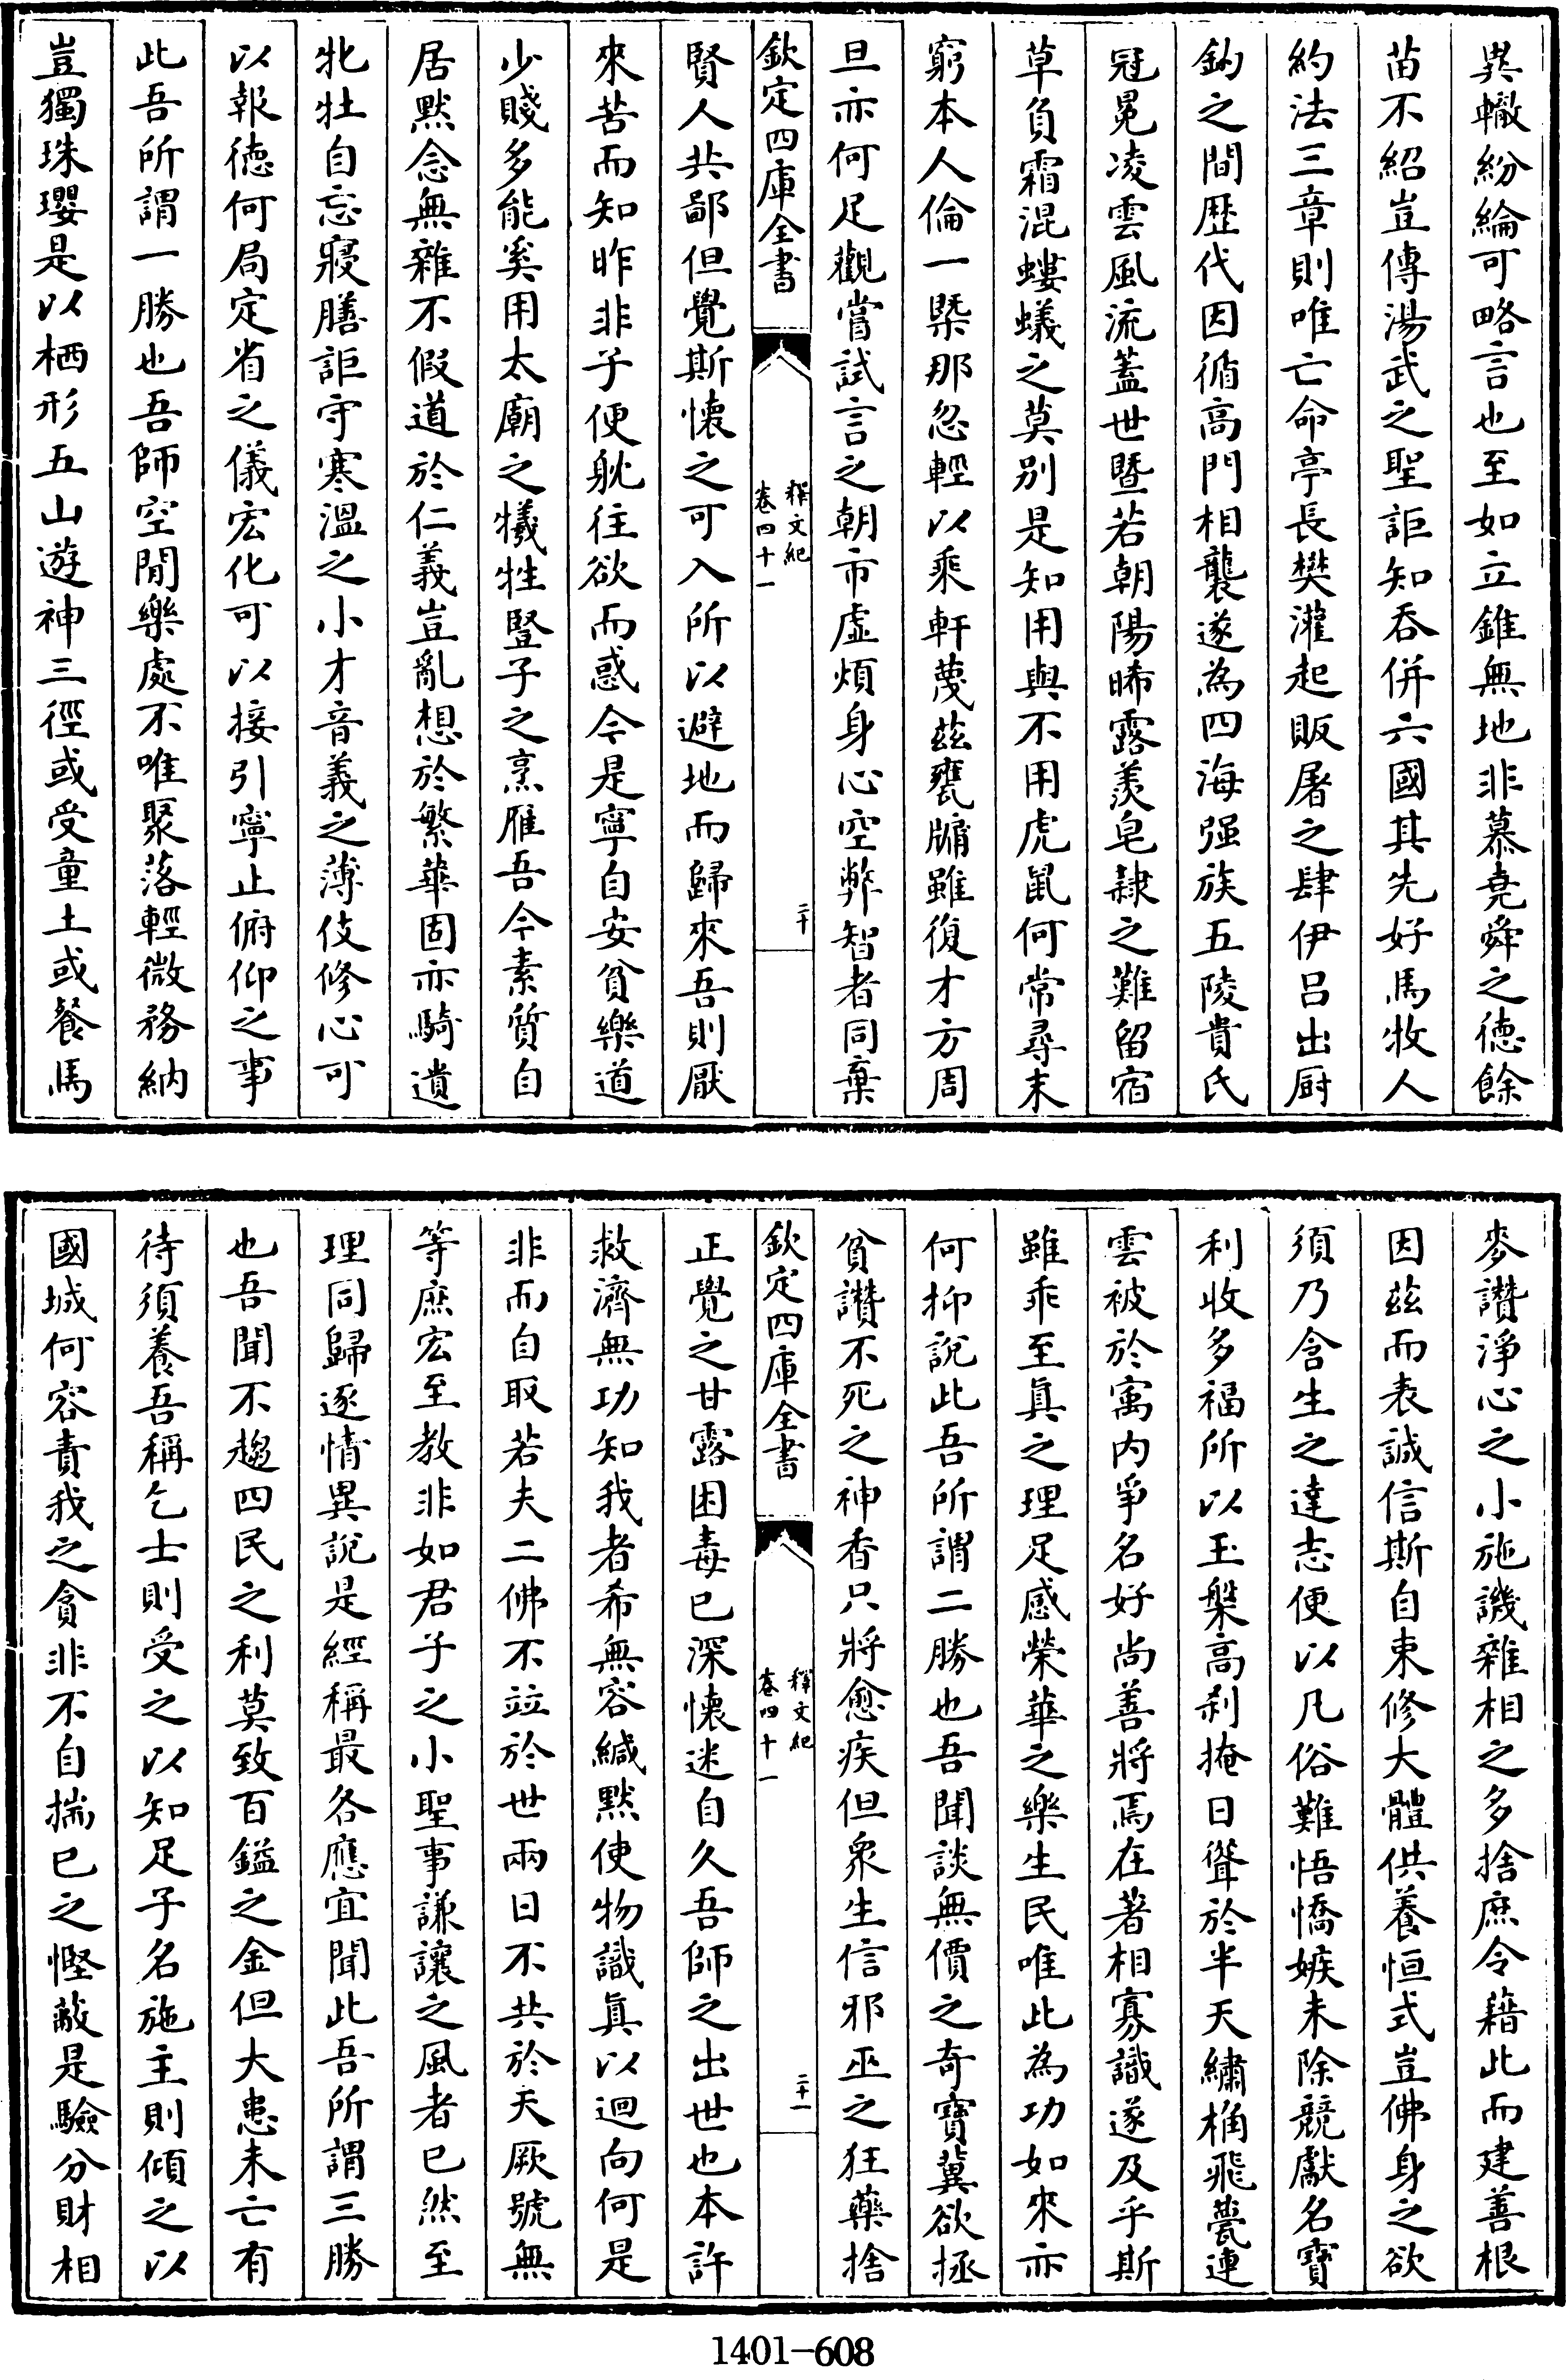 異轍紛綸可略言也至如立錐無地非慕堯舜之德餘
苗不紹豈傳湯武之聖詎知吞併六國其先好馬牧人
約法三章則唯亡命亭長樊灌起販屠之肆伊吕出厨
釣之間歷代因循高門相襲遂為四海强族五陵貴氏
冠冕凌雲風流蓋世暨若朝陽晞露羨皂隸之難留宿
草負霜混螻蟻之莫别是知用與不用虎鼠何常尋末
窮本人倫一槩那忽輕以乘軒蔑茲甕牖雖復才方周
旦亦何足觀嘗試言之朝市虛煩身心空弊智者同棄
欽定四庫全書
釋文紀
卷四十一
二十
賢人共鄙但覺斯懷之可入所以避地而歸來吾則厭
來苦而知昨非子便躭往欲而惑今是寧自安貧樂道
少賤多能奚用太廟之犧牲豎子之烹雁吾今素質自
居默念無雜不假道於仁義豈亂想於繁華固亦騎遺
牝牡自忘寢膳詎守寒溫之小才音義之薄伎修心可
以報德何局定省之儀宏化可以接引寧止俯仰之事
此吾所謂一勝也吾師空閒樂處不唯聚落輕微務納
豈獨珠瓔是以栖形五山遊神三徑或受童土或餐馬
麥讚淨心之小施譏雜相之多捨庶令藉此而建善根
因茲而表誠信斯自束修大體供養恒式豈佛身之欲
須乃含生之達志便以凡俗難悟憍嫉未除競獻名寶
利收多福所以玉槃高刹掩日聳於半天繡桷飛甍連
雲被於寓内爭名好尚善將焉在著相寡識遂及乎斯
雖乖至真之理足感榮華之樂生民唯此為功如來亦
何抑說此吾所謂二勝也吾聞談無價之奇寶冀欲拯
貧讚不死之神香只將愈疾但衆生信邪巫之狂藥捨
欽定四庫全書
釋文紀
卷四十一
二十一
正覺之甘露困毒已深懷迷自久吾師之出世也本許
救濟無功知我者希無容緘默使物識真以迴向何是
非而自取若夫二佛不竝於世兩日不共於天厥號無
等庶宏至教非如君子之小聖事謙讓之風者已然至
理同歸逐情異說是經稱最各應宜聞此吾所謂三勝
也吾聞不趨四民之利莫致百鎰之金但大患未亡有
待須養吾稱乞士則受之以知足子名施主則傾之以
國城何容責我之貪非不自揣已之慳蔽是驗分財相
1401-608